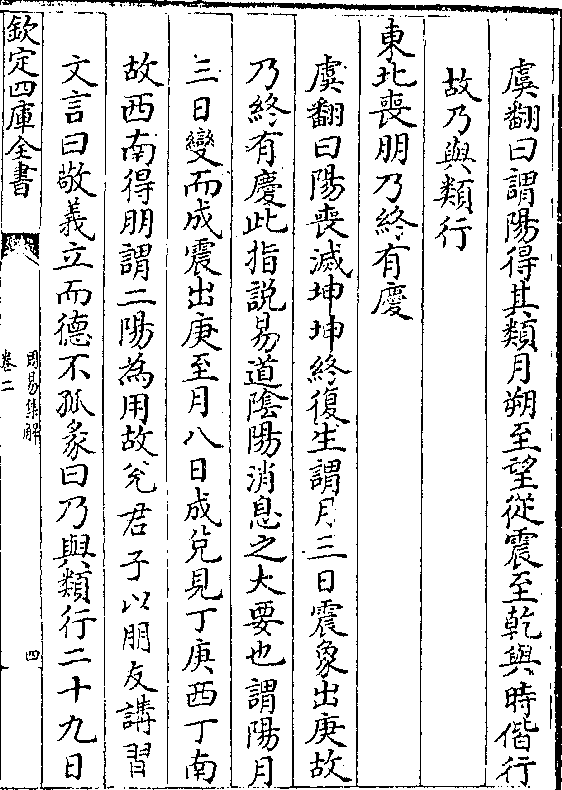 虞翻曰謂陽得其類月朔至望從震至乾與時偕行
故乃與類行
東北喪朋乃終有慶
虞翻曰陽喪滅坤坤終復生謂月三日震象出庚故
乃終有慶此指説易道陰陽消息之大要也謂陽月
三日變而成震出庚至月八日成兑見丁庚西丁南
故西南得朋謂二陽為用故兑君子以朋友講習
文言曰敬義立而德不孤彖曰乃與類行二十九日
欽定四庫全書
周易集解
卷二
四